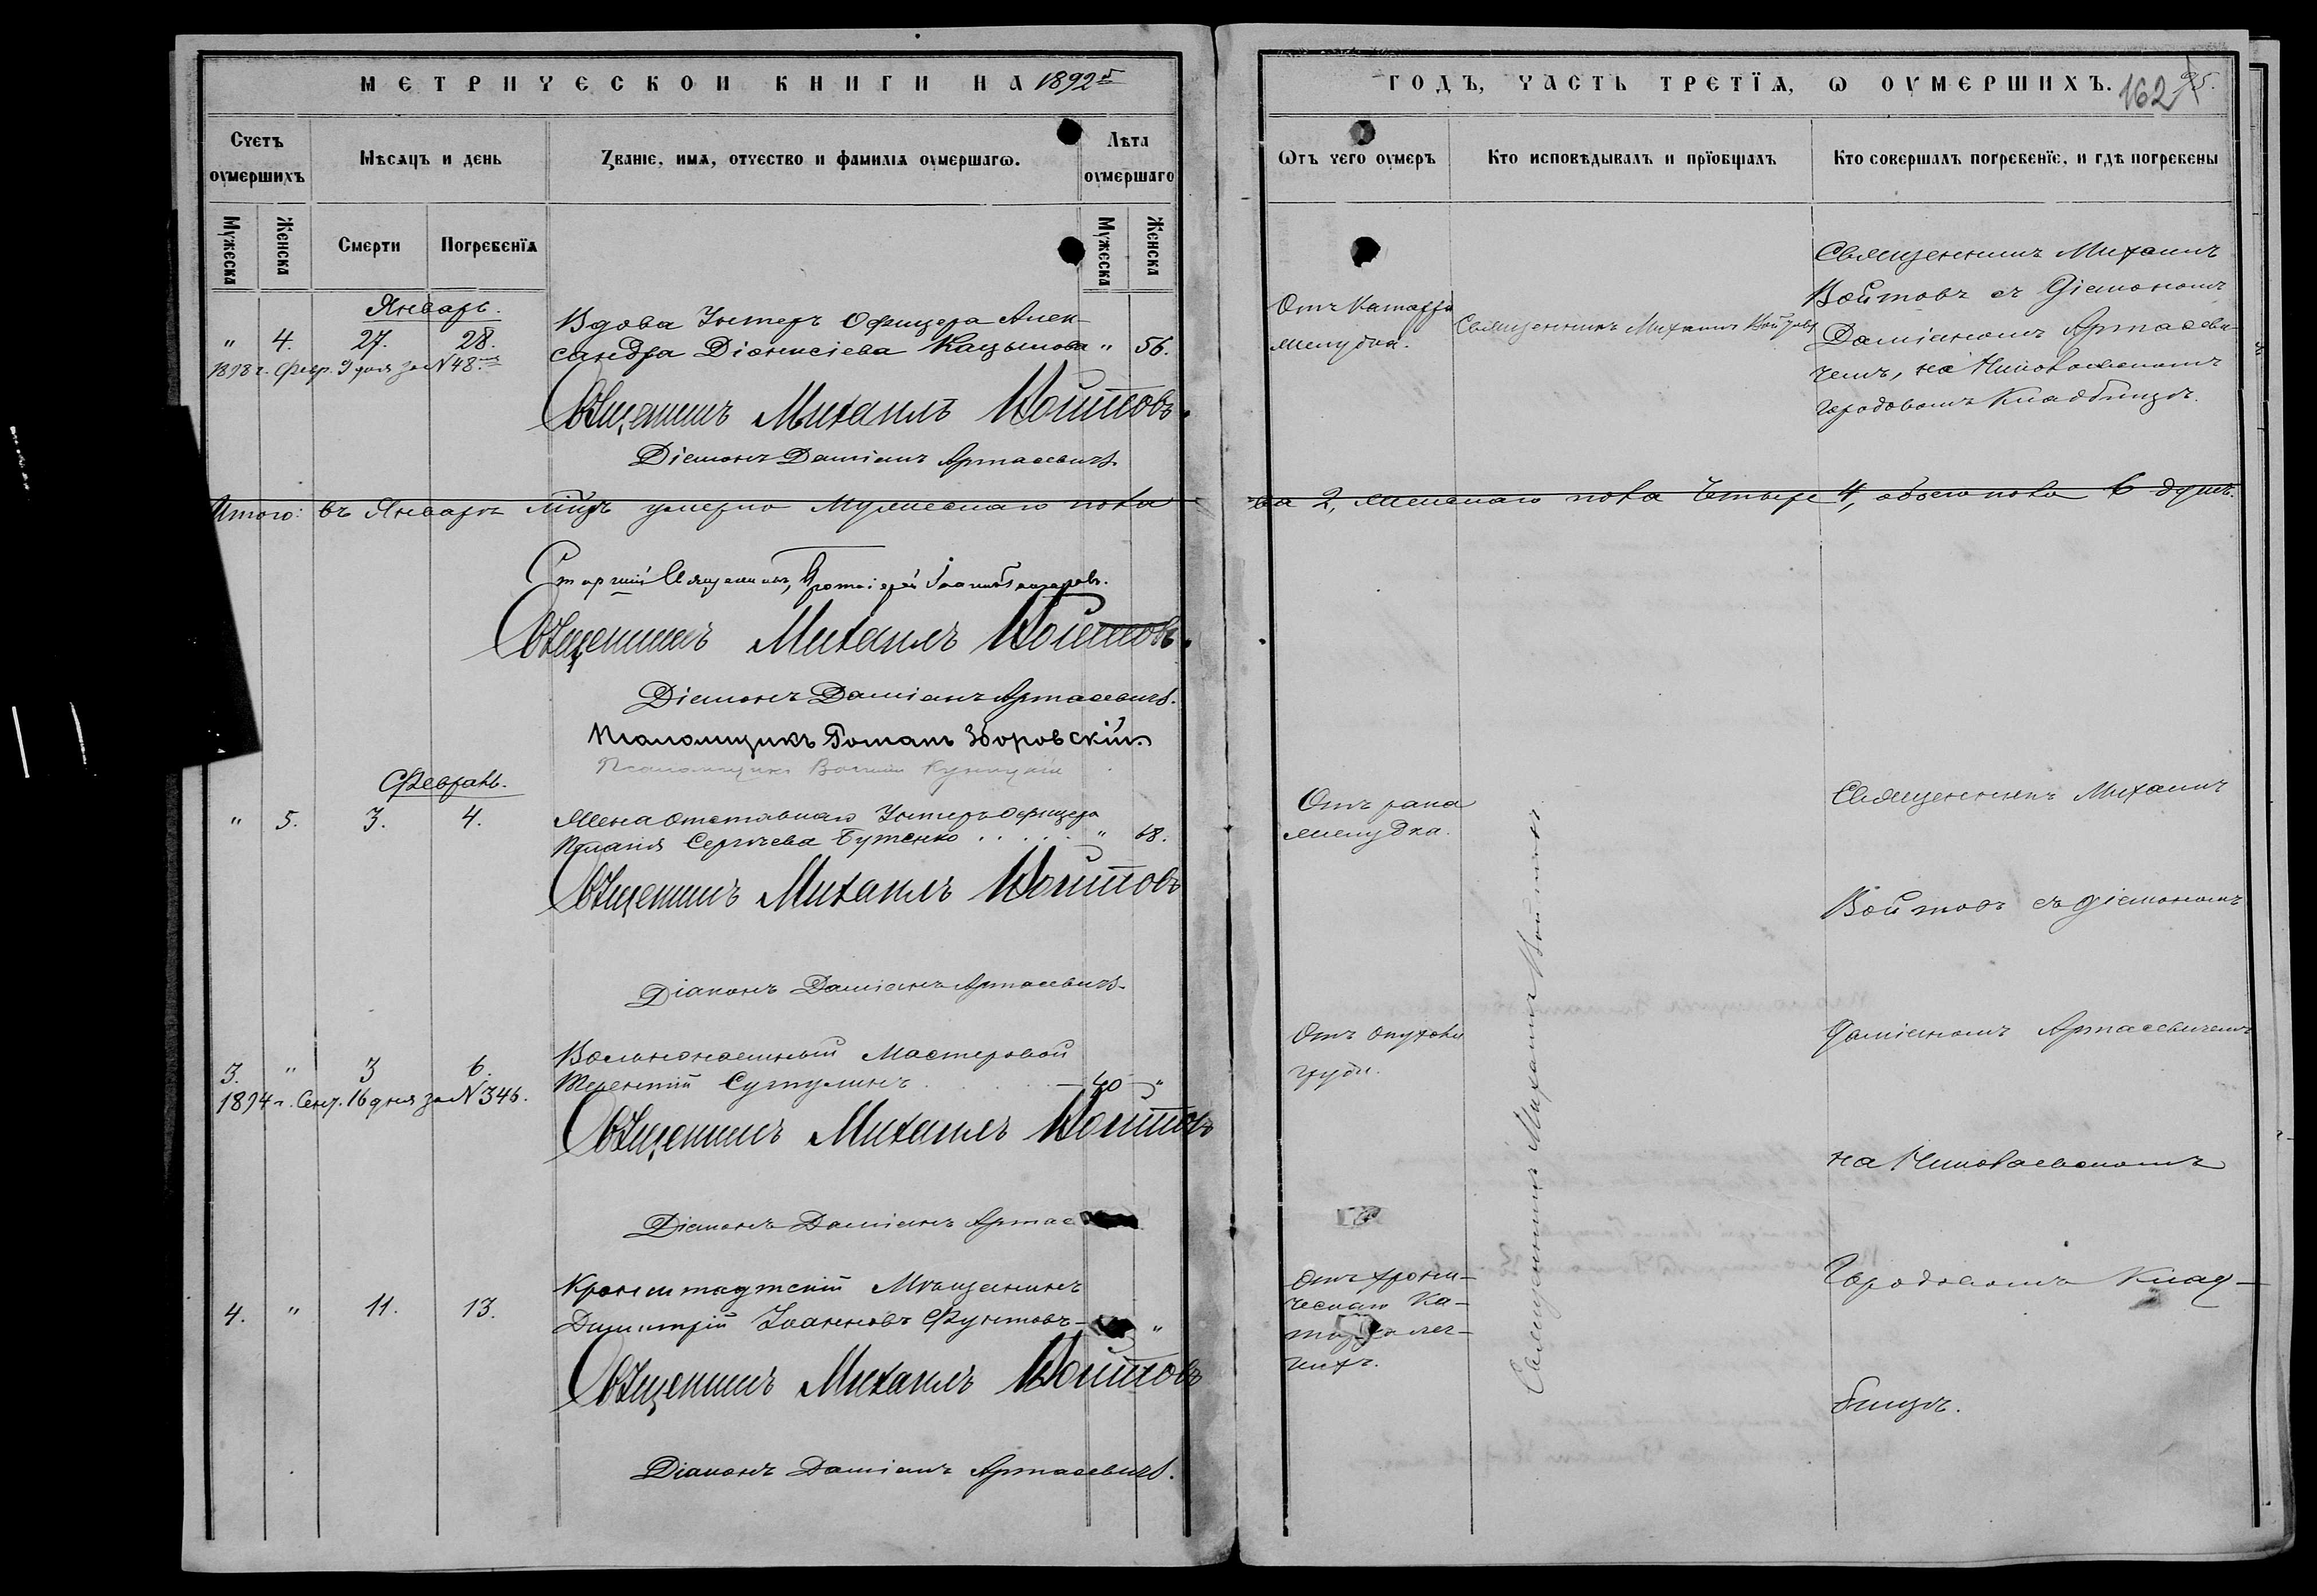 МЕТРИЧЕСКОЙ КНИГИ НА 1892й
Счетъ оумершихъ
Мѣсяцъ и день
Званіе, имя, отчество и фамилія оумершагѡ.
Лѣта оумершаго
Мужеска
Женска
Смерти
Погребенїя
Мужеска
Женска
Январь.
" 4. 27. 28.
Вдова Унтеръ Офицера Алек-
сандра Діонисіева " 56.
1898 г. Февр. 9 дня за № 48.
Священникъ Михаилъ Войтовъ.
Діаконъ Даміанъ Артасевичъ.
Итого: въ Январѣ мцѣ умерло Мужескаго пола
Старшій Священникъ, Протоіерей Іоаннъ
Священникъ Михаилъ Войтовъ.
Діаконъ Даміанъ Артасевичъ.
Псаломщикъ Романъ Зборовскій.
Псаломщикъ
Февраль.
" 5. 3. 4.
Жена отставнаго Унтеръ офицера
Сергѣева Бутенко . . . . . " 68.
Священникъ Михаилъ Войтовъ
Діаконъ Даміанъ Артасевичъ.
3. " 3 6.
Вольнонаемный Мастеровой
Терентій Сутулинъ . . . — 40 — "
1894 г. Сент. 16 дня за № 346.
Священникъ Михаилъ Войтовъ
Діаконъ Даміанъ Артас
4. " 11. 13.
Кронштадтскій Мѣщанинъ
Димитрій Іоанновъ Фунтовъ — "
Священникъ Михаилъ Войтовъ
Діаконъ Даміанъ Артасевичъ.
ГОДЪ, ЧАСТЬ ТРЕТЇЯ, Ѡ ОУМЕРШИХЪ. 162 95.
Ѿтъ чего оумеръ
Кто исповѣдывалъ и прїобщалъ
Кто совершалъ погребенїе, и гдѣ погребены
Отъ Катарра
желудка.
Священникъ Михаилъ Войтовъ
Священникъ Михаилъ
Войтовъ съ Діакономъ
Даміаномъ Артасеви-
чемъ, на Николаевскомъ
городовомъ Кладбищѣ.
ва 2, женскаго пола Четыре 4, обоего пола 6 душъ.
Отъ рака
желудка.
Отъ опухоли
груди.
Отъ хрони-
ческаго Ка-
лег-
кихъ.
Священникъ Михаилъ Войтовъ
Священникъ Михаилъ
Войтовъ съ Діакономъ
Даміаномъ Артасевичемъ
на Николаевскомъ
Городовомъ Клад-
бищѣ.